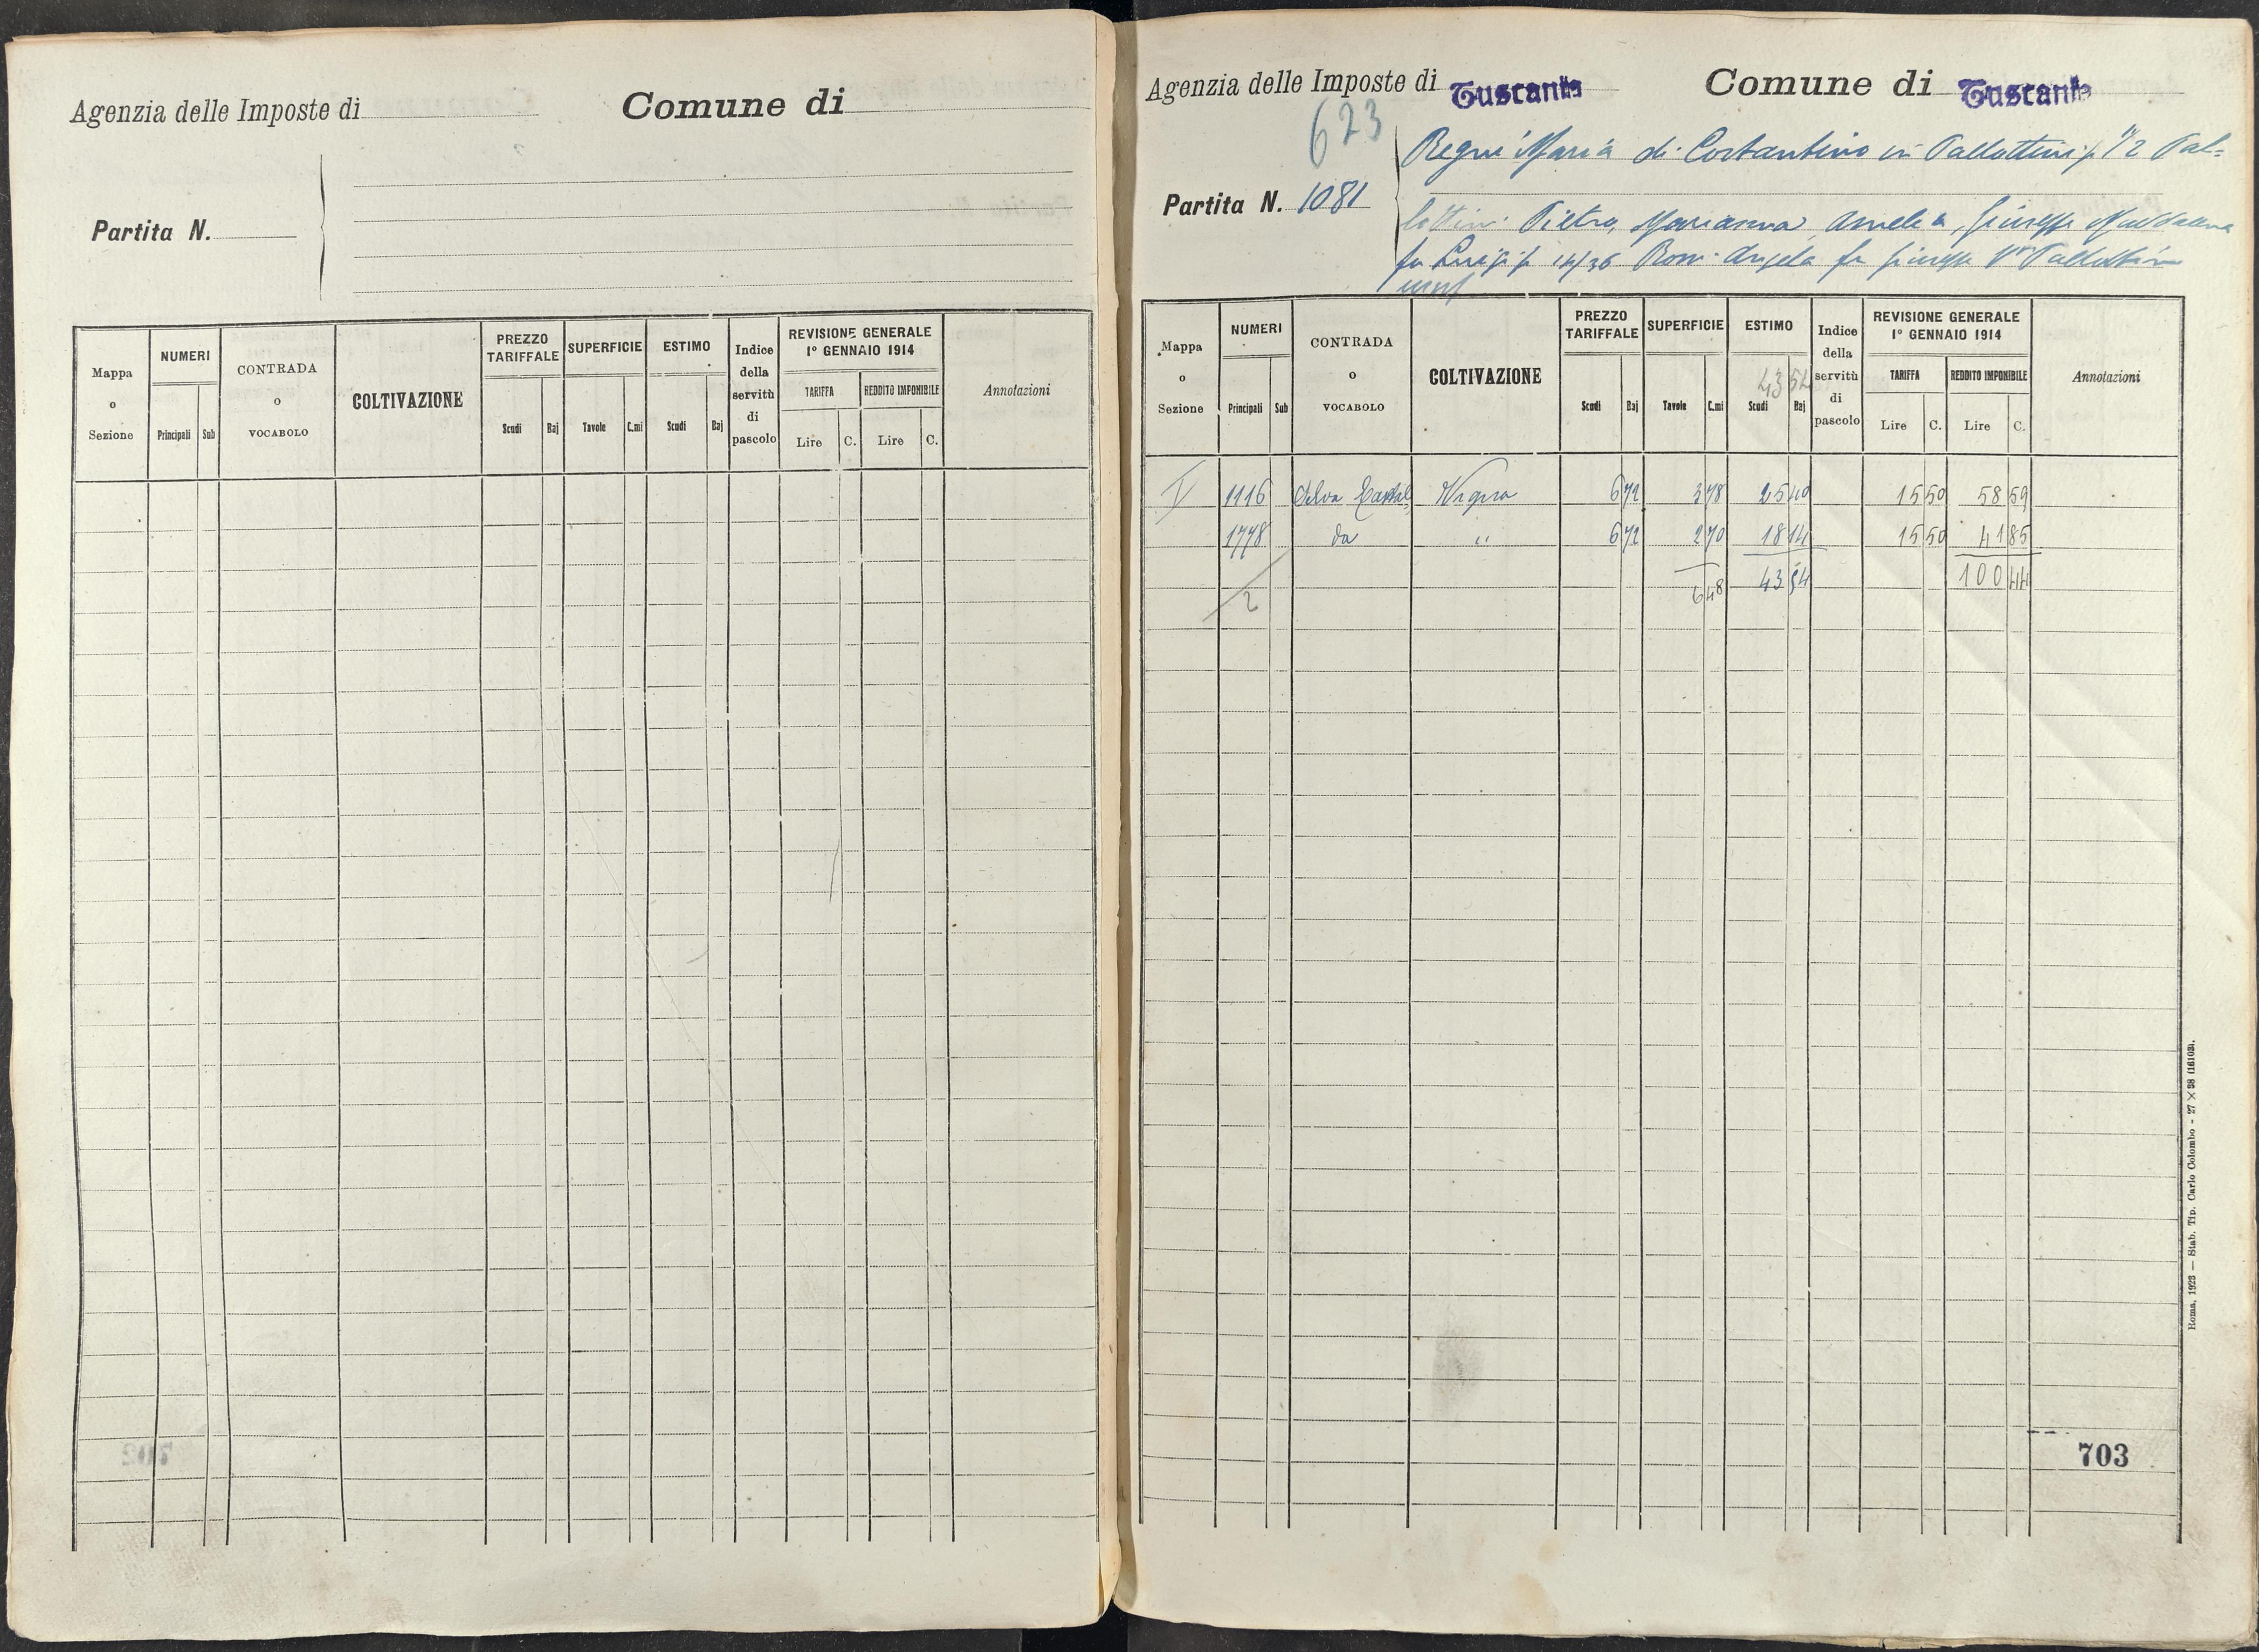 Agenzia delle Imposte di
Comune di
Partita N.
Mappa o Sezione
NUMERI
Principali Sub
CONTRADA O VOCABOLO
COLTIVAZIONE
PREZZO TARIFFALE
Scudi Baj
SUPERFICIE
Tavole C.mi
ESTIMO
Scudi Baj
Indice della servitù di pascolo
REVISIONE GENERALE
1° GENNAIO 1914
TARIFFA REDDITO IMPONIBILE
Lire C. Lire C.
Annotazioni
Agenzia delle Imposte di Tuscania
Comune di Tuscania
623
Partita N. 1081
Regni Maria di Costantino in Pallottini p 1/2 Pal=
lottini Pietro, Marianna, Amelia, Giuseppe Maddalena
fu Luigi p 14/36 Rossi Angela fu Giuseppe Va Pallottini
usuf
Mappa o Sezione
NUMERI
Principali Sub
CONTRADA O VOCABOLO
COLTIVAZIONE
PREZZO TARIFFALE
Scudi Baj
SUPERFICIE
Tavole C.mi
ESTIMO
43 54
Scudi Baj
Indice della servitù di pascolo
REVISIONE GENERALE
1° GENNAIO 1914
TARIFFA REDDITO IMPONIBILE
Lire C. Lire C.
Annotazioni
V 1116 Selva Vigna 6 72 3 78 25 40 15 50 58 59
1778 da " 6 72 2 70 18 14 15 50 41 85
2 6 48 43 54 100 44
703
Roma, 1923 — Stab. Tip. Carlo Colombo - 27 × 38 (16103).